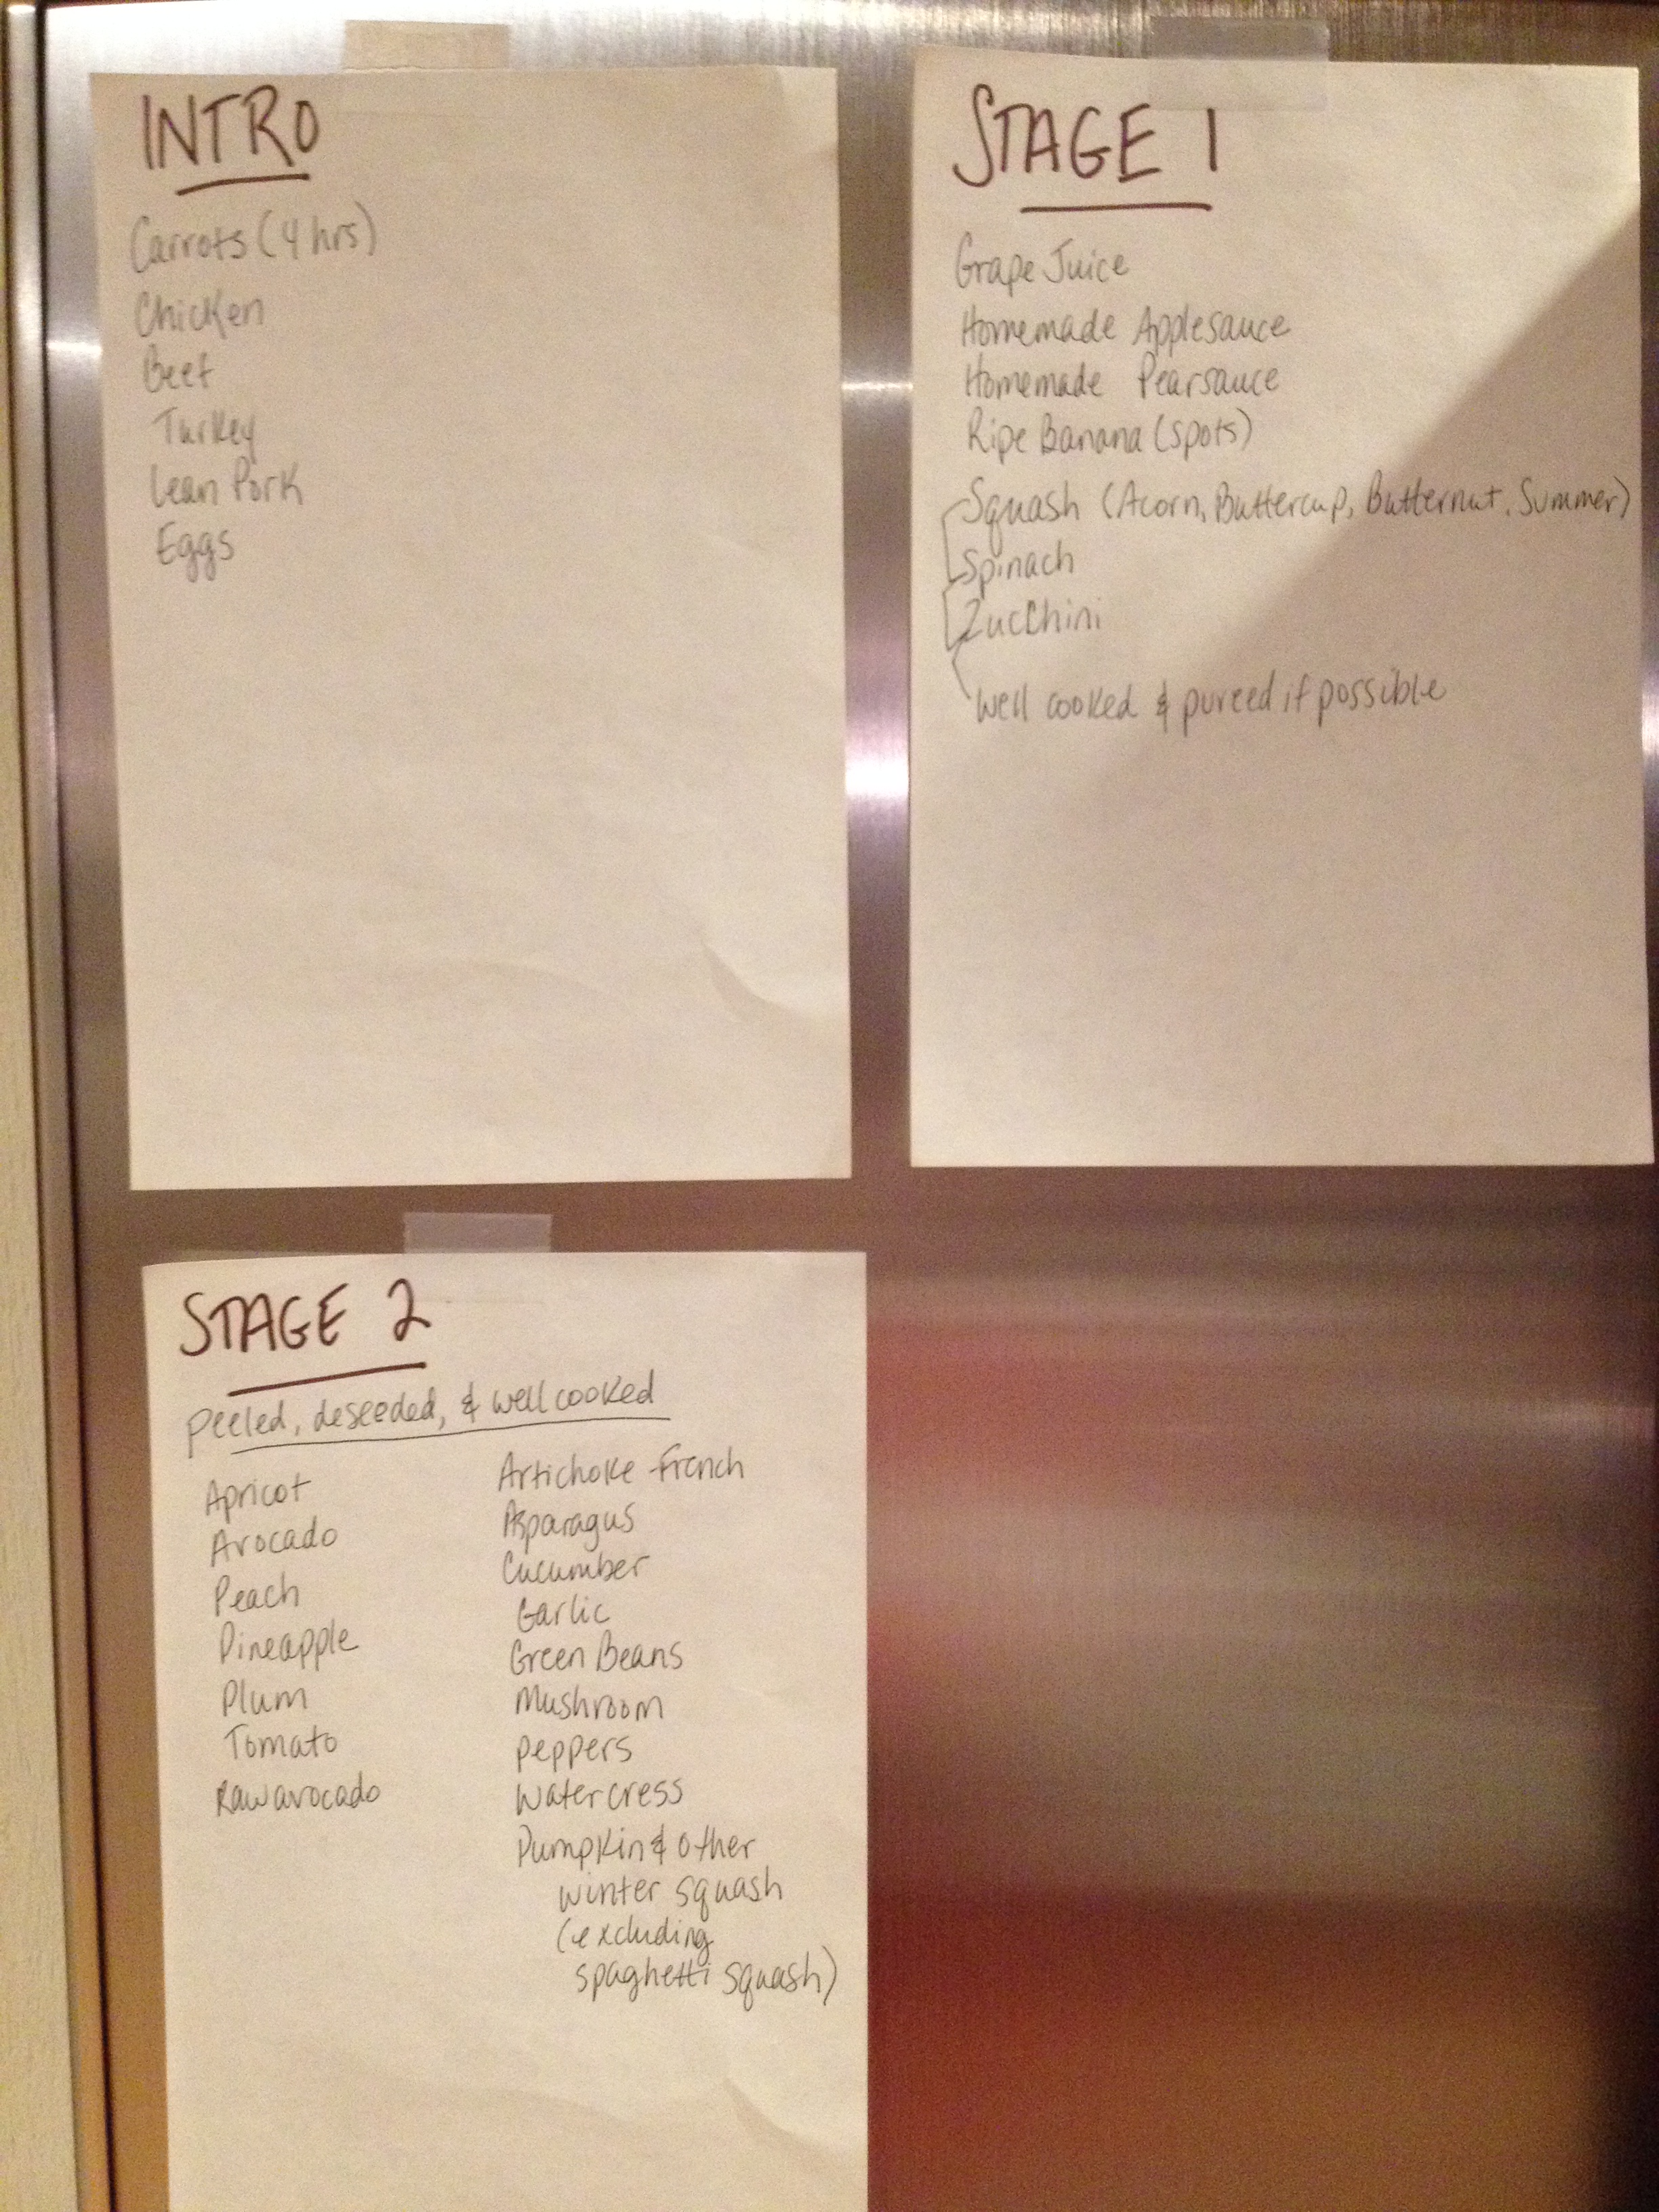 INTRO
Carrots (4 hrs)
Chicken
Beef
Turkey
Lean Pork
Eggs
STAGE 1
Grape Juice
Homemade Applesauce
Homemade Pearsauce
Ripe Banana (spots)
Squash (Acorn, Buttercup, Butternut, Summer)
Spinach
Zucchini
well cooked & pureed if possible
STAGE 2
peeled, deseeded, & well cooked
Apricot
Avocado
Peach
Pineapple
Plum
Tomato
Raw avocado
Artichoke - French
Asparagus
Cucumber
Garlic
Green Beans
Mushroom
peppers
Watercress
Pumpkin & other
winter squash
(excluding
spaghetti squash)